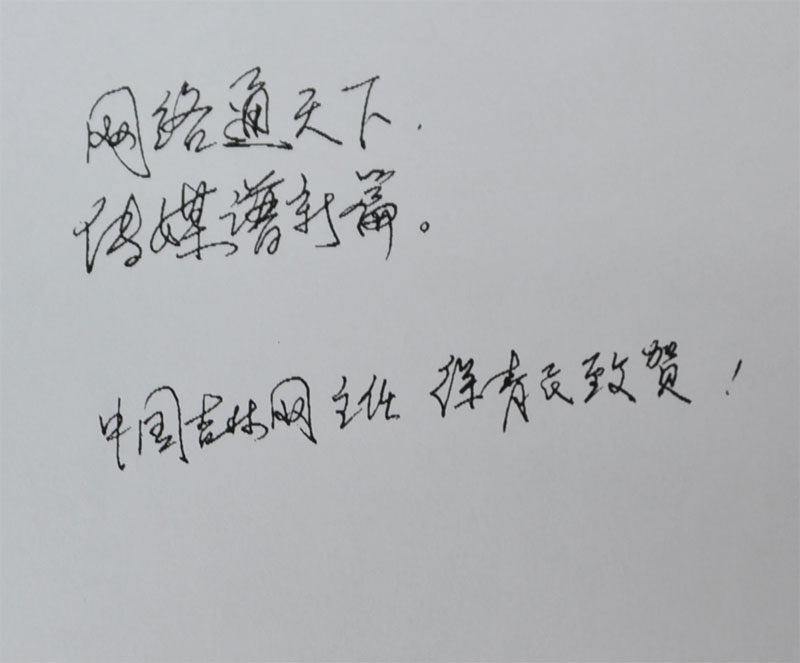 网络通天下.
传媒谱新篇。
中国吉林网主任 徐青民致贺！